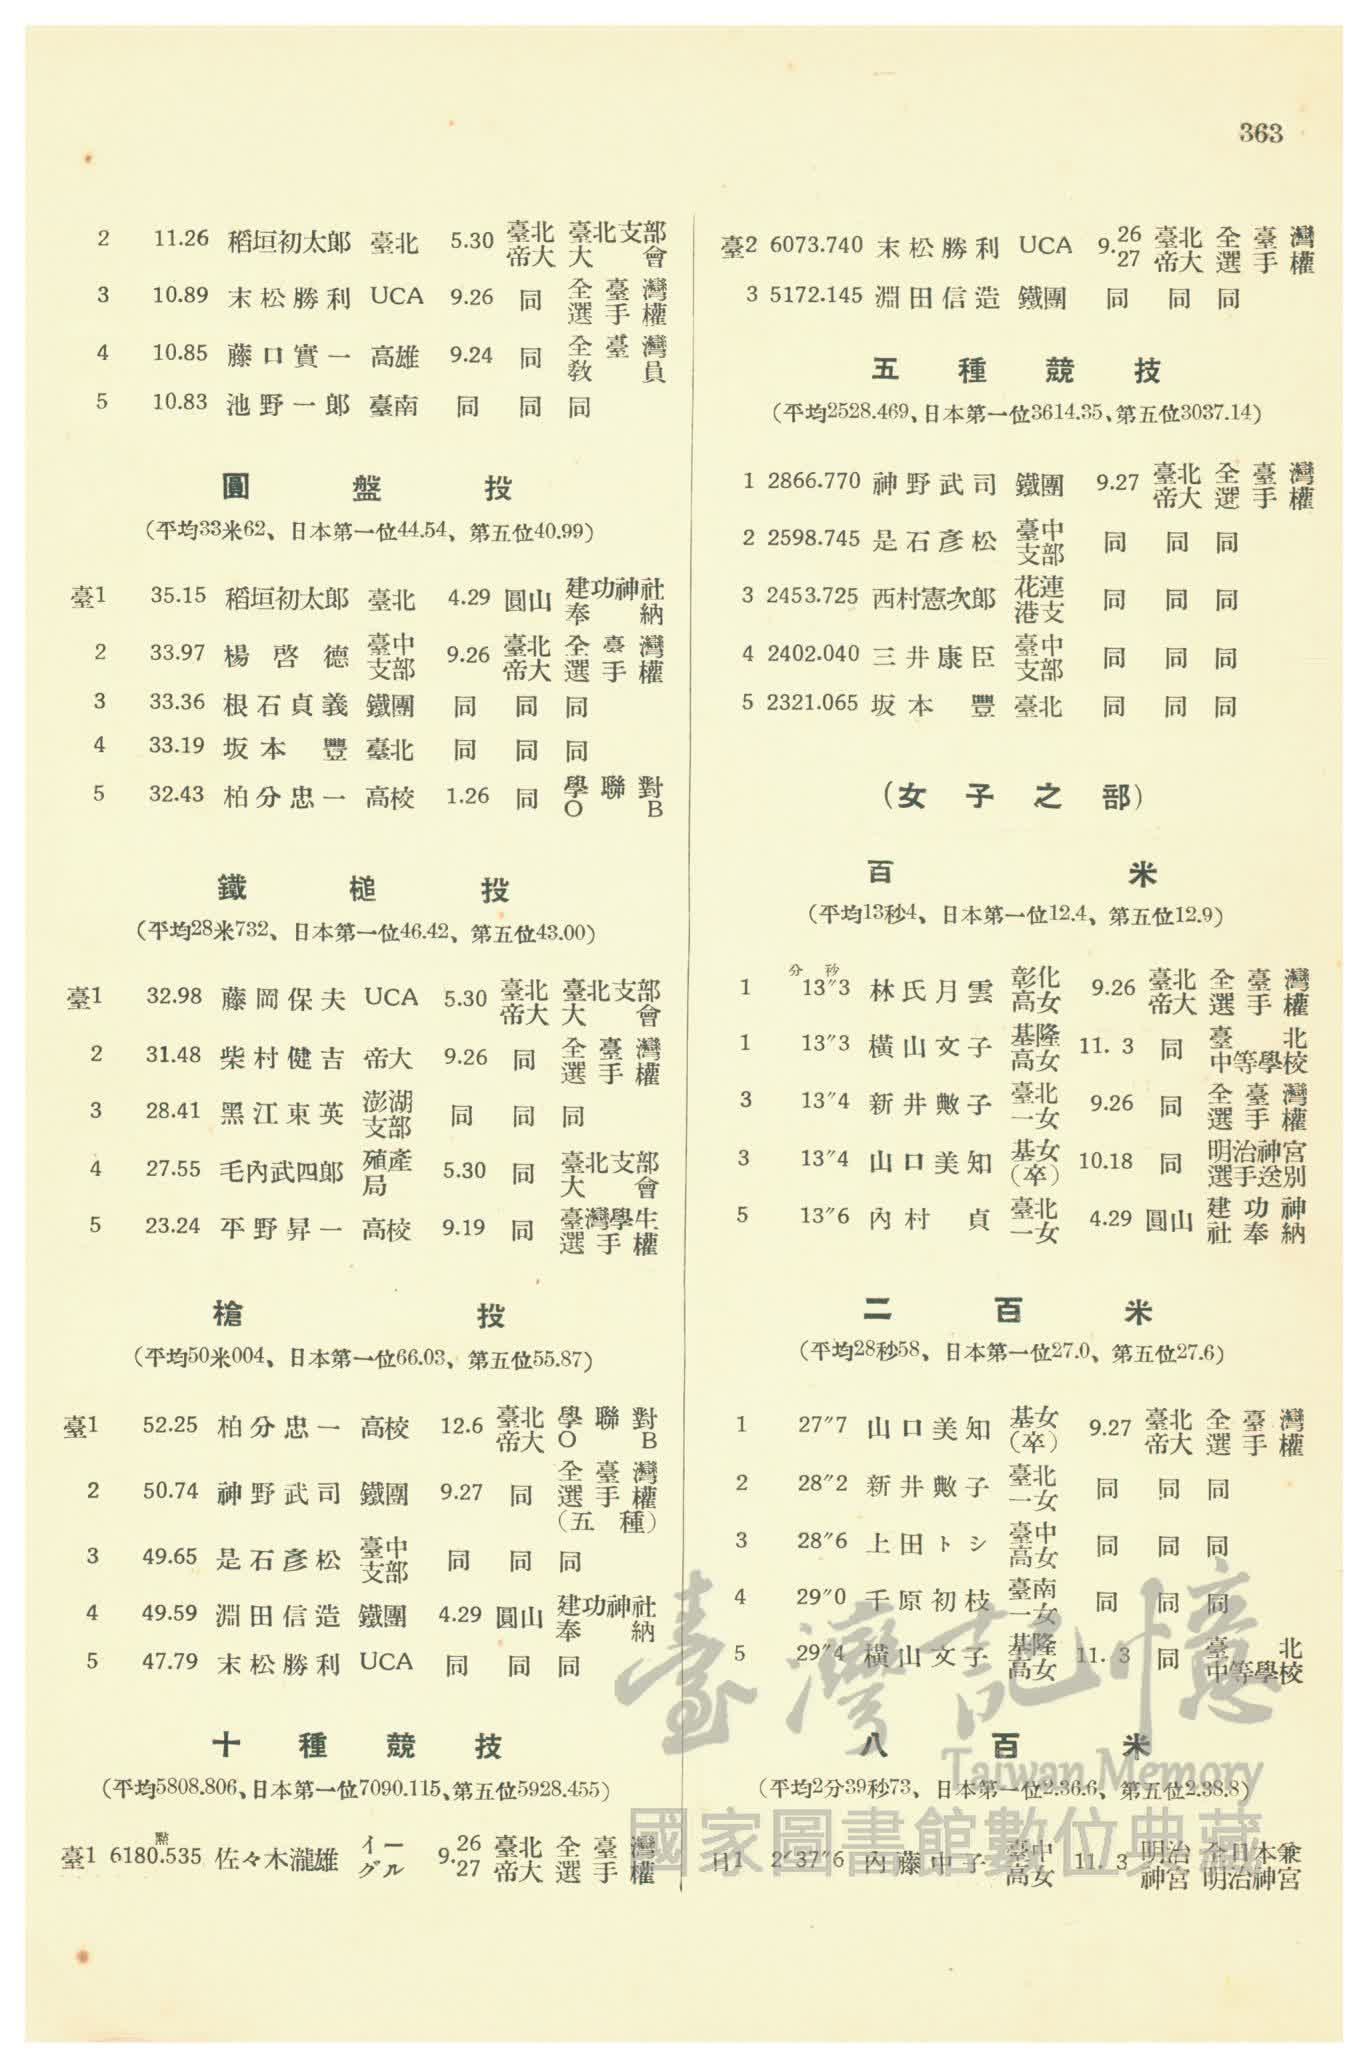 363
2 11.26 稻垣初太郎 臺北 5.30 臺北帝大 臺北支部大會
3 10.89 末松勝利 UCA 9.26 同 全臺灣選手權
4 10.85 藤口實一 高雄 9.24 同 全臺灣教員
5 10.83 池野一郎 臺南 同 同 同
圓盤投
(平均33米62、日本第一位44.54、第五位40.99)
臺1 35.15 稻垣初太郎 臺北 4.29 圓山 建功神社奉納
2 33.97 楊啓德 臺中支部 9.26 臺北帝大 全臺灣選手權
3 33.36 根石貞義 鐵團 同 同 同
4 33.19 坂本豐 臺北 同 同 同
5 32.43 柏分忠一 高校 1.26 同 學聯對OB
鐵槌投
(平均28米732、日本第一位46.42、第五位43.00)
臺1 32.98 藤岡保夫 UCA 5.30 臺北帝大 臺北支部大會
2 31.48 柴村健吉 帝大 9.26 同 全臺灣選手權
3 28.41 黑江東英 澎湖支部 同 同 同
4 27.55 毛內武四郎 殖產局 5.30 同 臺北支部大會
5 23.24 平野昇一 高校 9.19 同 臺灣學生選手權
槍投
(平均50米004、日本第一位66.03、第五位55.87)
臺1 52.25 柏分忠一 高校 12.6 臺北帝大 學聯對OB
2 50.74 神野武司 鐵團 9.27 同 全臺灣選手權(五種)
3 49.65 是石彥松 臺中支部 同 同 同
4 49.59 淵田信造 鐵團 4.29 圓山 建功神社奉納
5 47.79 末松勝利 UCA 同 同 同
十種競技
(平均5808.806、日本第一位7090.115、第五位5928.455)
點
臺1 6180.535 佐々木瀧雄 イーグル 9.26 27 臺北帝大 全臺灣選手權
臺2 6073.740 末松勝利 UCA 9.26 27 臺北帝大 全臺灣選手權
3 5172.145 淵田信造 鐵團 同 同 同
五種競技
(平均2528.469、日本第一位3614.35、第五位3037.14)
1 2866.770 神野武司 鐵團 9.27 臺北帝大 全臺灣選手權
2 2598.745 是石彥松 臺中支部 同 同 同
3 2453.725 西村憲次郎 花連港支 同 同 同
4 2402.040 三井康臣 臺中支部 同 同 同
5 2321.065 坂本豐 臺北 同 同 同
(女子之部)
百米
(平均13秒4、日本第一位12.4、第五位12.9)
分 秒
1 13″3 林氏月雲 彰化高女 9.26 臺北帝大 全臺灣選手權
1 13″3 橫山文子 基隆高女 11. 3 同 臺北中等學校
3 13″4 新井敷子 臺北一女 9.26 同 全臺灣選手權
3 13″4 山口美知 基女(卒) 10.18 同 明治神宮選手送別
5 13″6 內村貞 臺北一女 4.29 圓山 建功神社奉納
二百米
(平均28秒58、日本第一位27.0、第五位27.6)
1 27″7 山口美知 基女(卒) 9.27 臺北帝大 全臺灣選手權
2 28″2 新井敷子 臺北一女 同 同 同
3 28″6 上田トシ 臺中高女 同 同 同
4 29″0 千原初枝 臺南一女 同 同 同
5 29″4 橫山文子 基隆高女 11. 3 同 臺北中等學校
八百米
(平均2分39秒73、日本第一位2.36.6、第五位2.38.8)
日1 2′37″6 內藤中子 臺中高女 11. 3 明治神宮 全日本兼明治神宮
臺灣記憶
Taiwan Memory
國家圖書館數位典藏